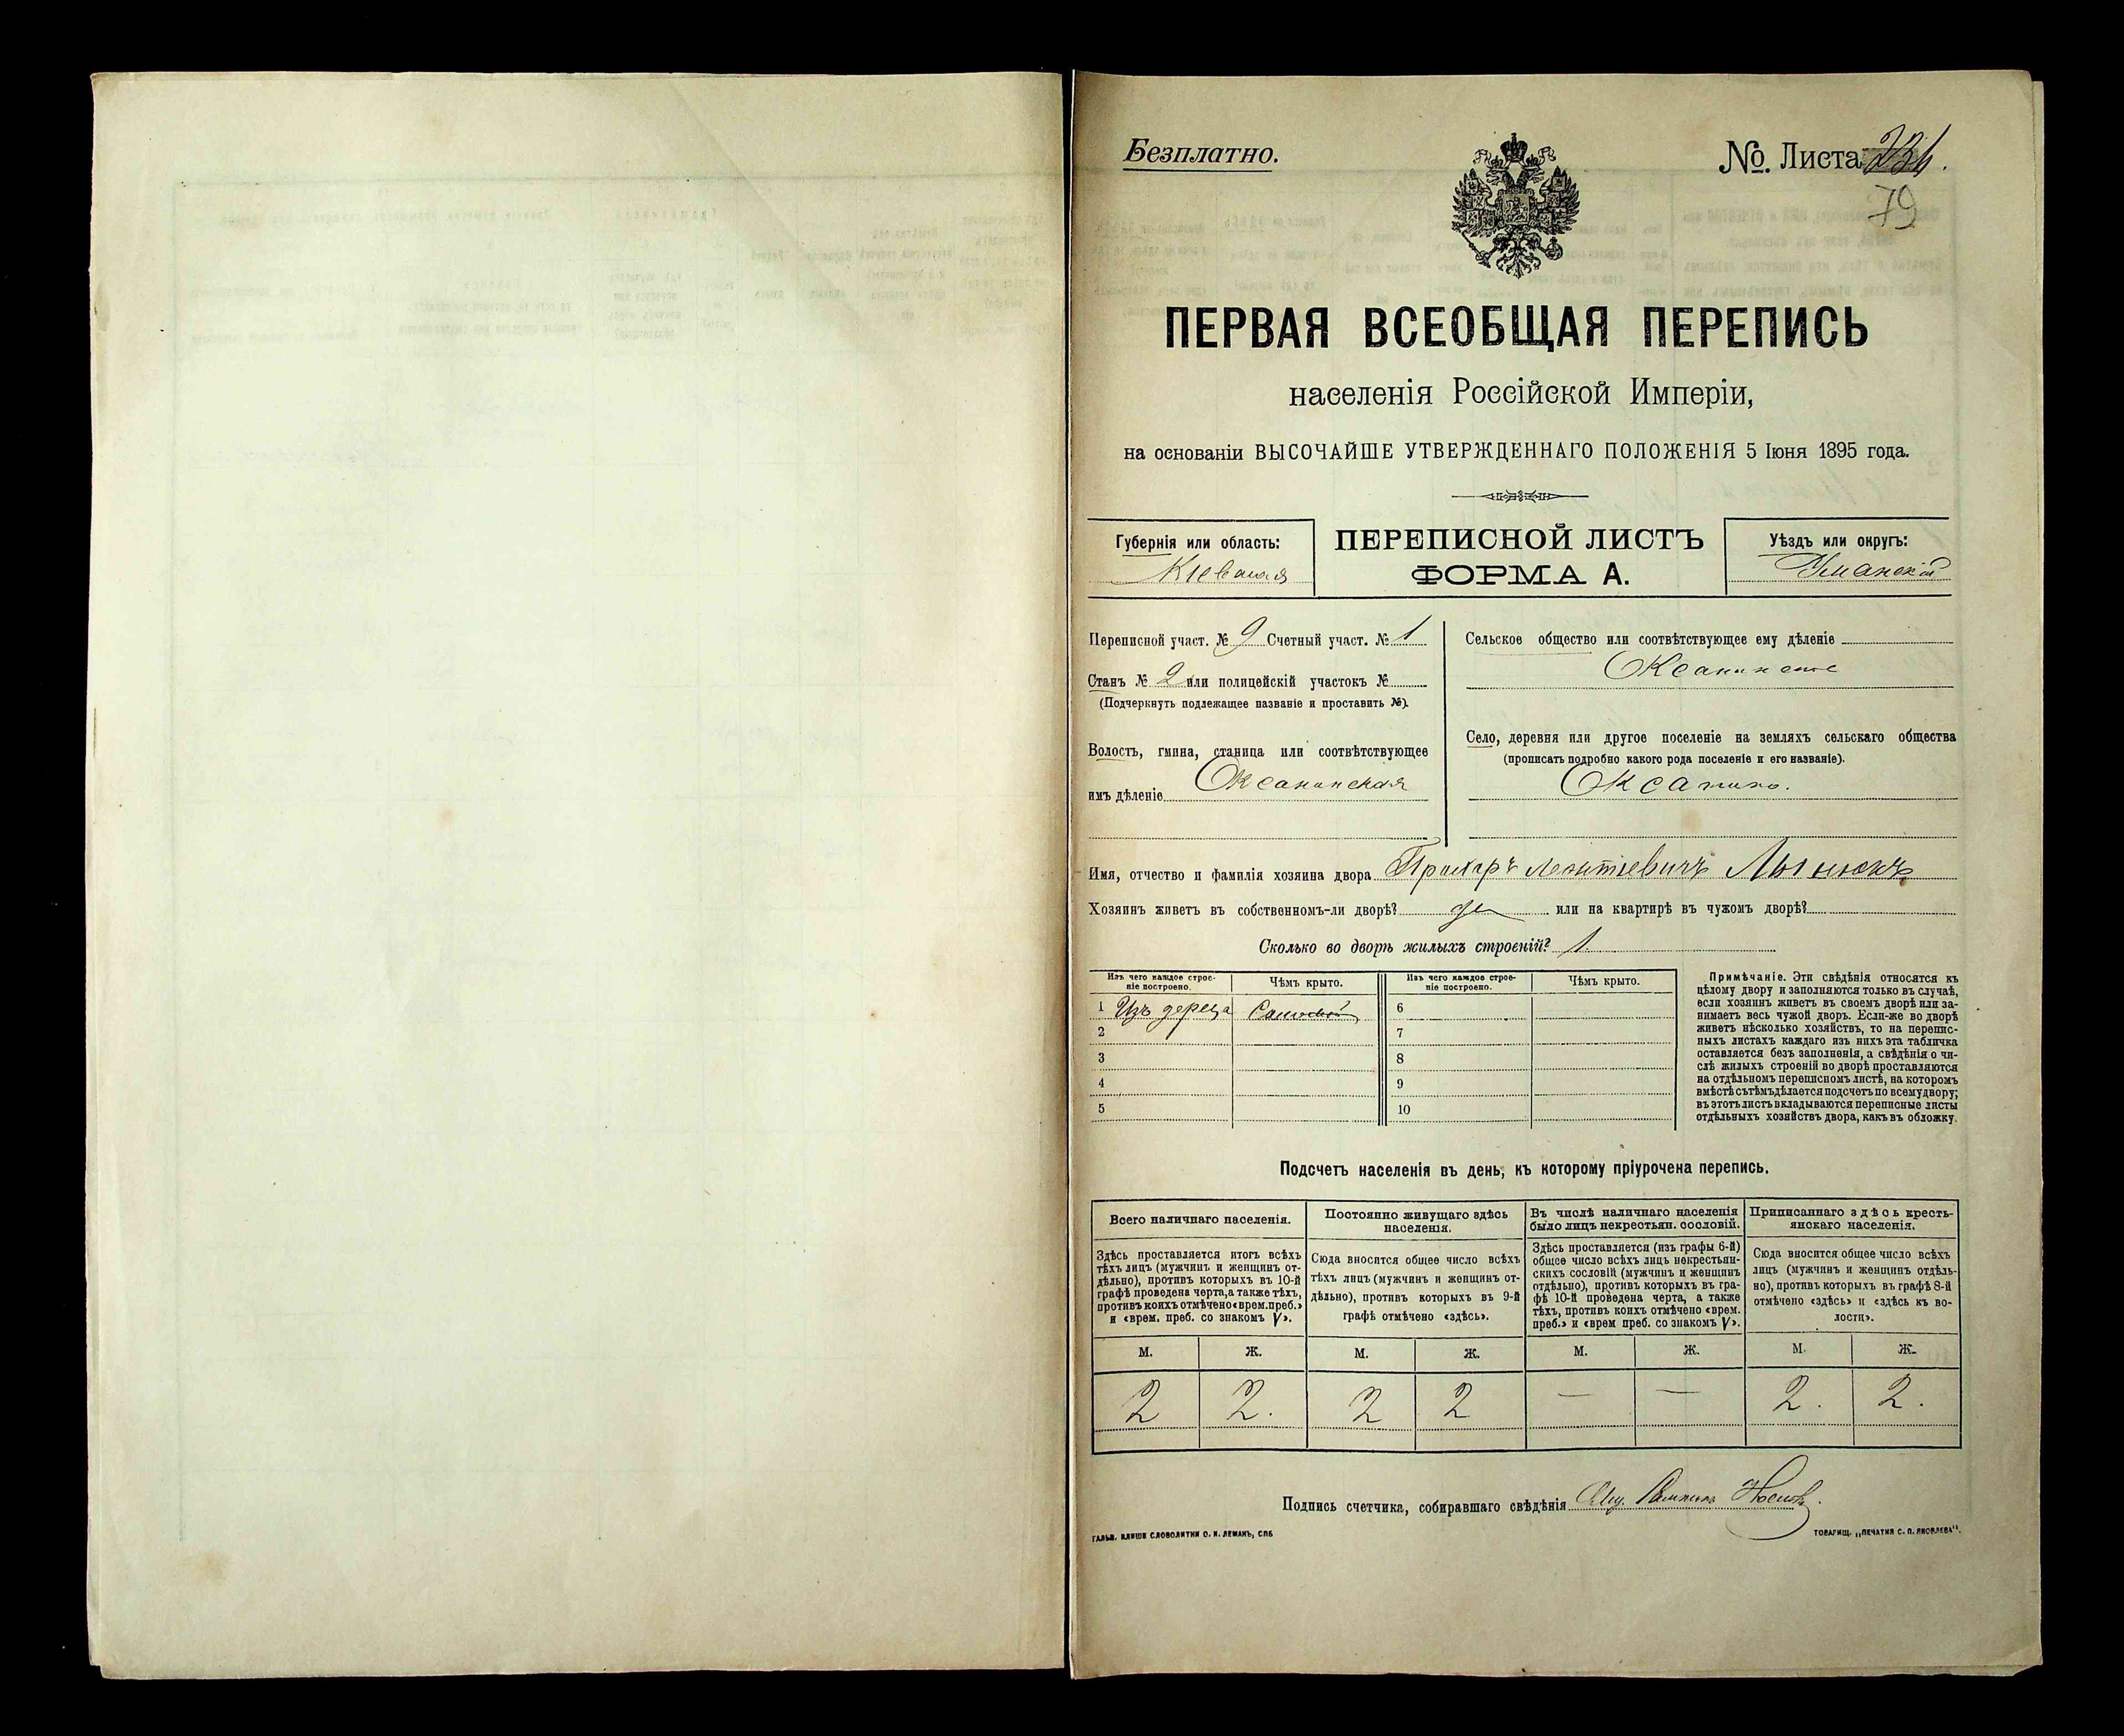 Безплатно.
№. Листа
79
ПЕРВАЯ ВСЕОБЩАЯ ПЕРЕПИСЬ
населенія Россійской Имперіи,
на основаніи ВЫСОЧАЙШЕ УТВЕРЖДЕННАГО ПОЛОЖЕНІЯ 5 Іюня 1895 года.
Губернія или область:
Кіевская
ПЕРЕПИСНОЙ ЛИСТЪ
ФОРМА А.
Уѣздъ или округъ:
Уманскій
Переписной участ. № 9 Счетный участ. № 1
Станъ № 2 или полицейскій участокъ №
(Подчеркнуть подлежащее названіе и проставить №).
Волость, гмина, станица или соотвѣтствующее
имъ дѣленіе Оксанинская
Сельское общество или соотвѣтствующее ему дѣленіе
Оксанинское
Село, деревня или другое поселеніе на земляхъ сельскаго общества
(прописать подробно какого рода поселеніе и его названіе).
Оксанино.
Имя, отчество и фамилія хозяина двора Прохоръ Леонтіевичъ
Хозяинъ живетъ въ собственномъ-ли дворѣ? да или на квартирѣ въ чужомъ дворѣ?
Сколько во дворѣ жилыхъ строеній? 1.
Изъ чего каждое строе-
ніе построено.
Чѣмъ крыто.
Изъ чего каждое строе-
ніе построено.
Чѣмъ крыто.
1 Изъ дерева Соломой 6
2 7
3 8
4 9
5 10
Примѣчаніе. Эти свѣдѣнія относятся къ
цѣлому двору и заполняются только въ случаѣ,
если хозяинъ живетъ въ своемъ дворѣ или за-
нимаетъ весь чужой дворъ. Если-же во дворѣ
живетъ нѣсколько хозяйствъ, то на перепис-
ныхъ листахъ каждаго изъ нихъ эта табличка
оставляется безъ заполненія, а свѣдѣнія о чи-
слѣ жилыхъ строеній во дворѣ проставляются
на отдѣльномъ переписномъ листѣ, на которомъ
вмѣстѣ съ тѣмъ дѣлается подсчетъ по всему двору;
въ этотъ листъ вкладываются переписные листы
отдѣльныхъ хозяйствъ двора, какъ въ обложку.
Подсчетъ населенія въ день, къ которому пріурочена перепись.
Всего наличнаго населенія.
Здѣсь проставляется итогъ всѣхъ
тѣхъ лицъ (мужчинъ и женщинъ от-
дѣльно), противъ которыхъ въ 10-й
графѣ проведена черта, а также тѣхъ,
противъ коихъ отмѣчено «врем. преб.»
и «врем. преб. со знакомъ V».
Постоянно живущаго здѣсь
населенія.
Сюда вносится общее число всѣхъ
тѣхъ лицъ (мужчинъ и женщинъ от-
дѣльно), противъ которыхъ въ 9-й
графѣ отмѣчено «здѣсь».
Въ числѣ наличнаго населенія
было лицъ некрестьян. сословій.
Здѣсь проставляется (изъ графы 6-й)
общее число всѣхъ лицъ некрестьян-
скихъ сословій (мужчинъ и женщинъ
отдѣльно), противъ которыхъ въ гра-
фѣ 10-й проведена черта, а также
тѣхъ, противъ коихъ отмѣчено «врем.
преб.» и «врем преб. со знакомъ V».
Приписаннаго здѣсь кресть-
янскаго населенія.
Сюда вносится общее число всѣхъ
лицъ (мужчинъ и женщинъ отдѣль-
но), противъ которыхъ въ графѣ 8-й
отмѣчено «здѣсь» и «здѣсь къ во-
лости».
М. Ж. М. Ж. М. Ж. М. Ж.
2 2. 2 2 — — 2. 2.
Подпись счетчика, собиравшаго свѣдѣнія
ГАЛЬВ. КЛИШЕ СЛОВОЛИТНИ О. И. ЛЕМАНЪ, СПБ.
ТОВАРИЩ. „ПЕЧАТНЯ С. П. ЯКОВЛЕВА“.